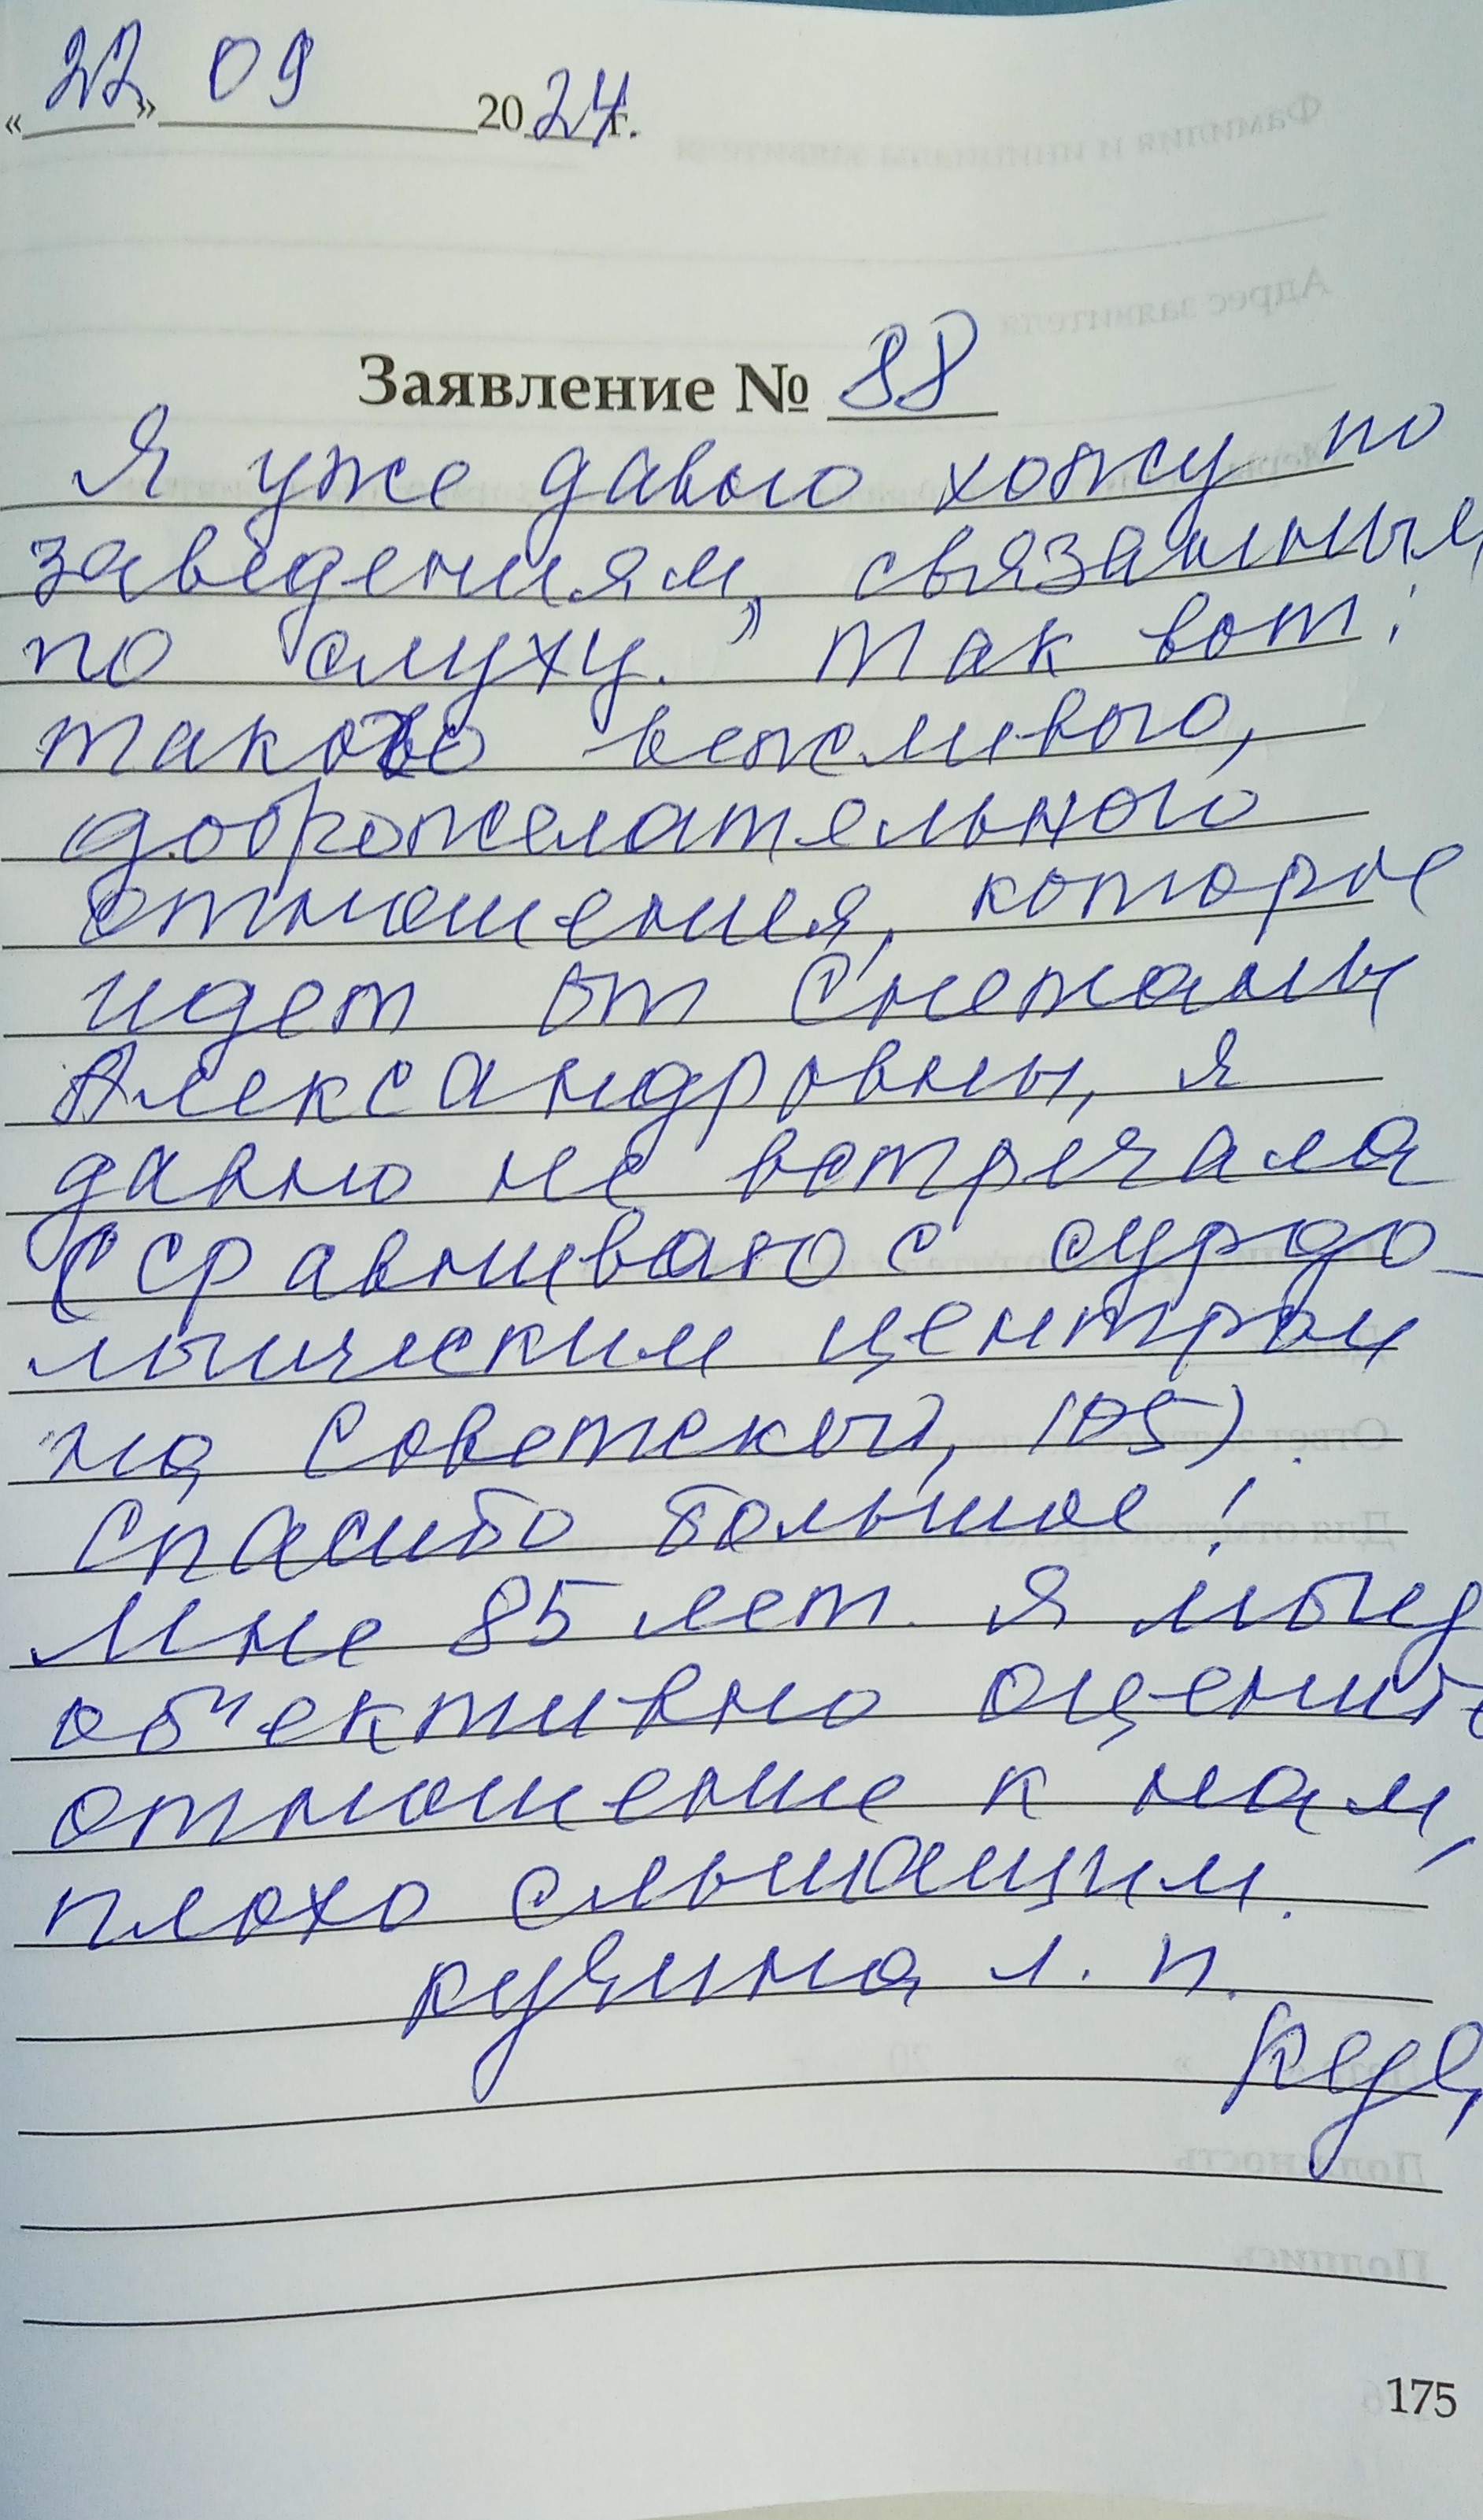 «22» 09 2024г.
Заявление № 88
Я уже давно хожу по
заведениям, связанным
по "слуху." Так вот:
такого вежливого,
доброжелательного
отношения, которое
идет от Снежаны
Александровны, я
давно не встречала
(сравниваю с сурдо-
лыическим центром
на Советской, 105).
Спасибо большое!
Мне 85 лет. Я могу
об"ективно оценить
отношение к нам,
плохо слышащим.
Кучина Л. П.
175